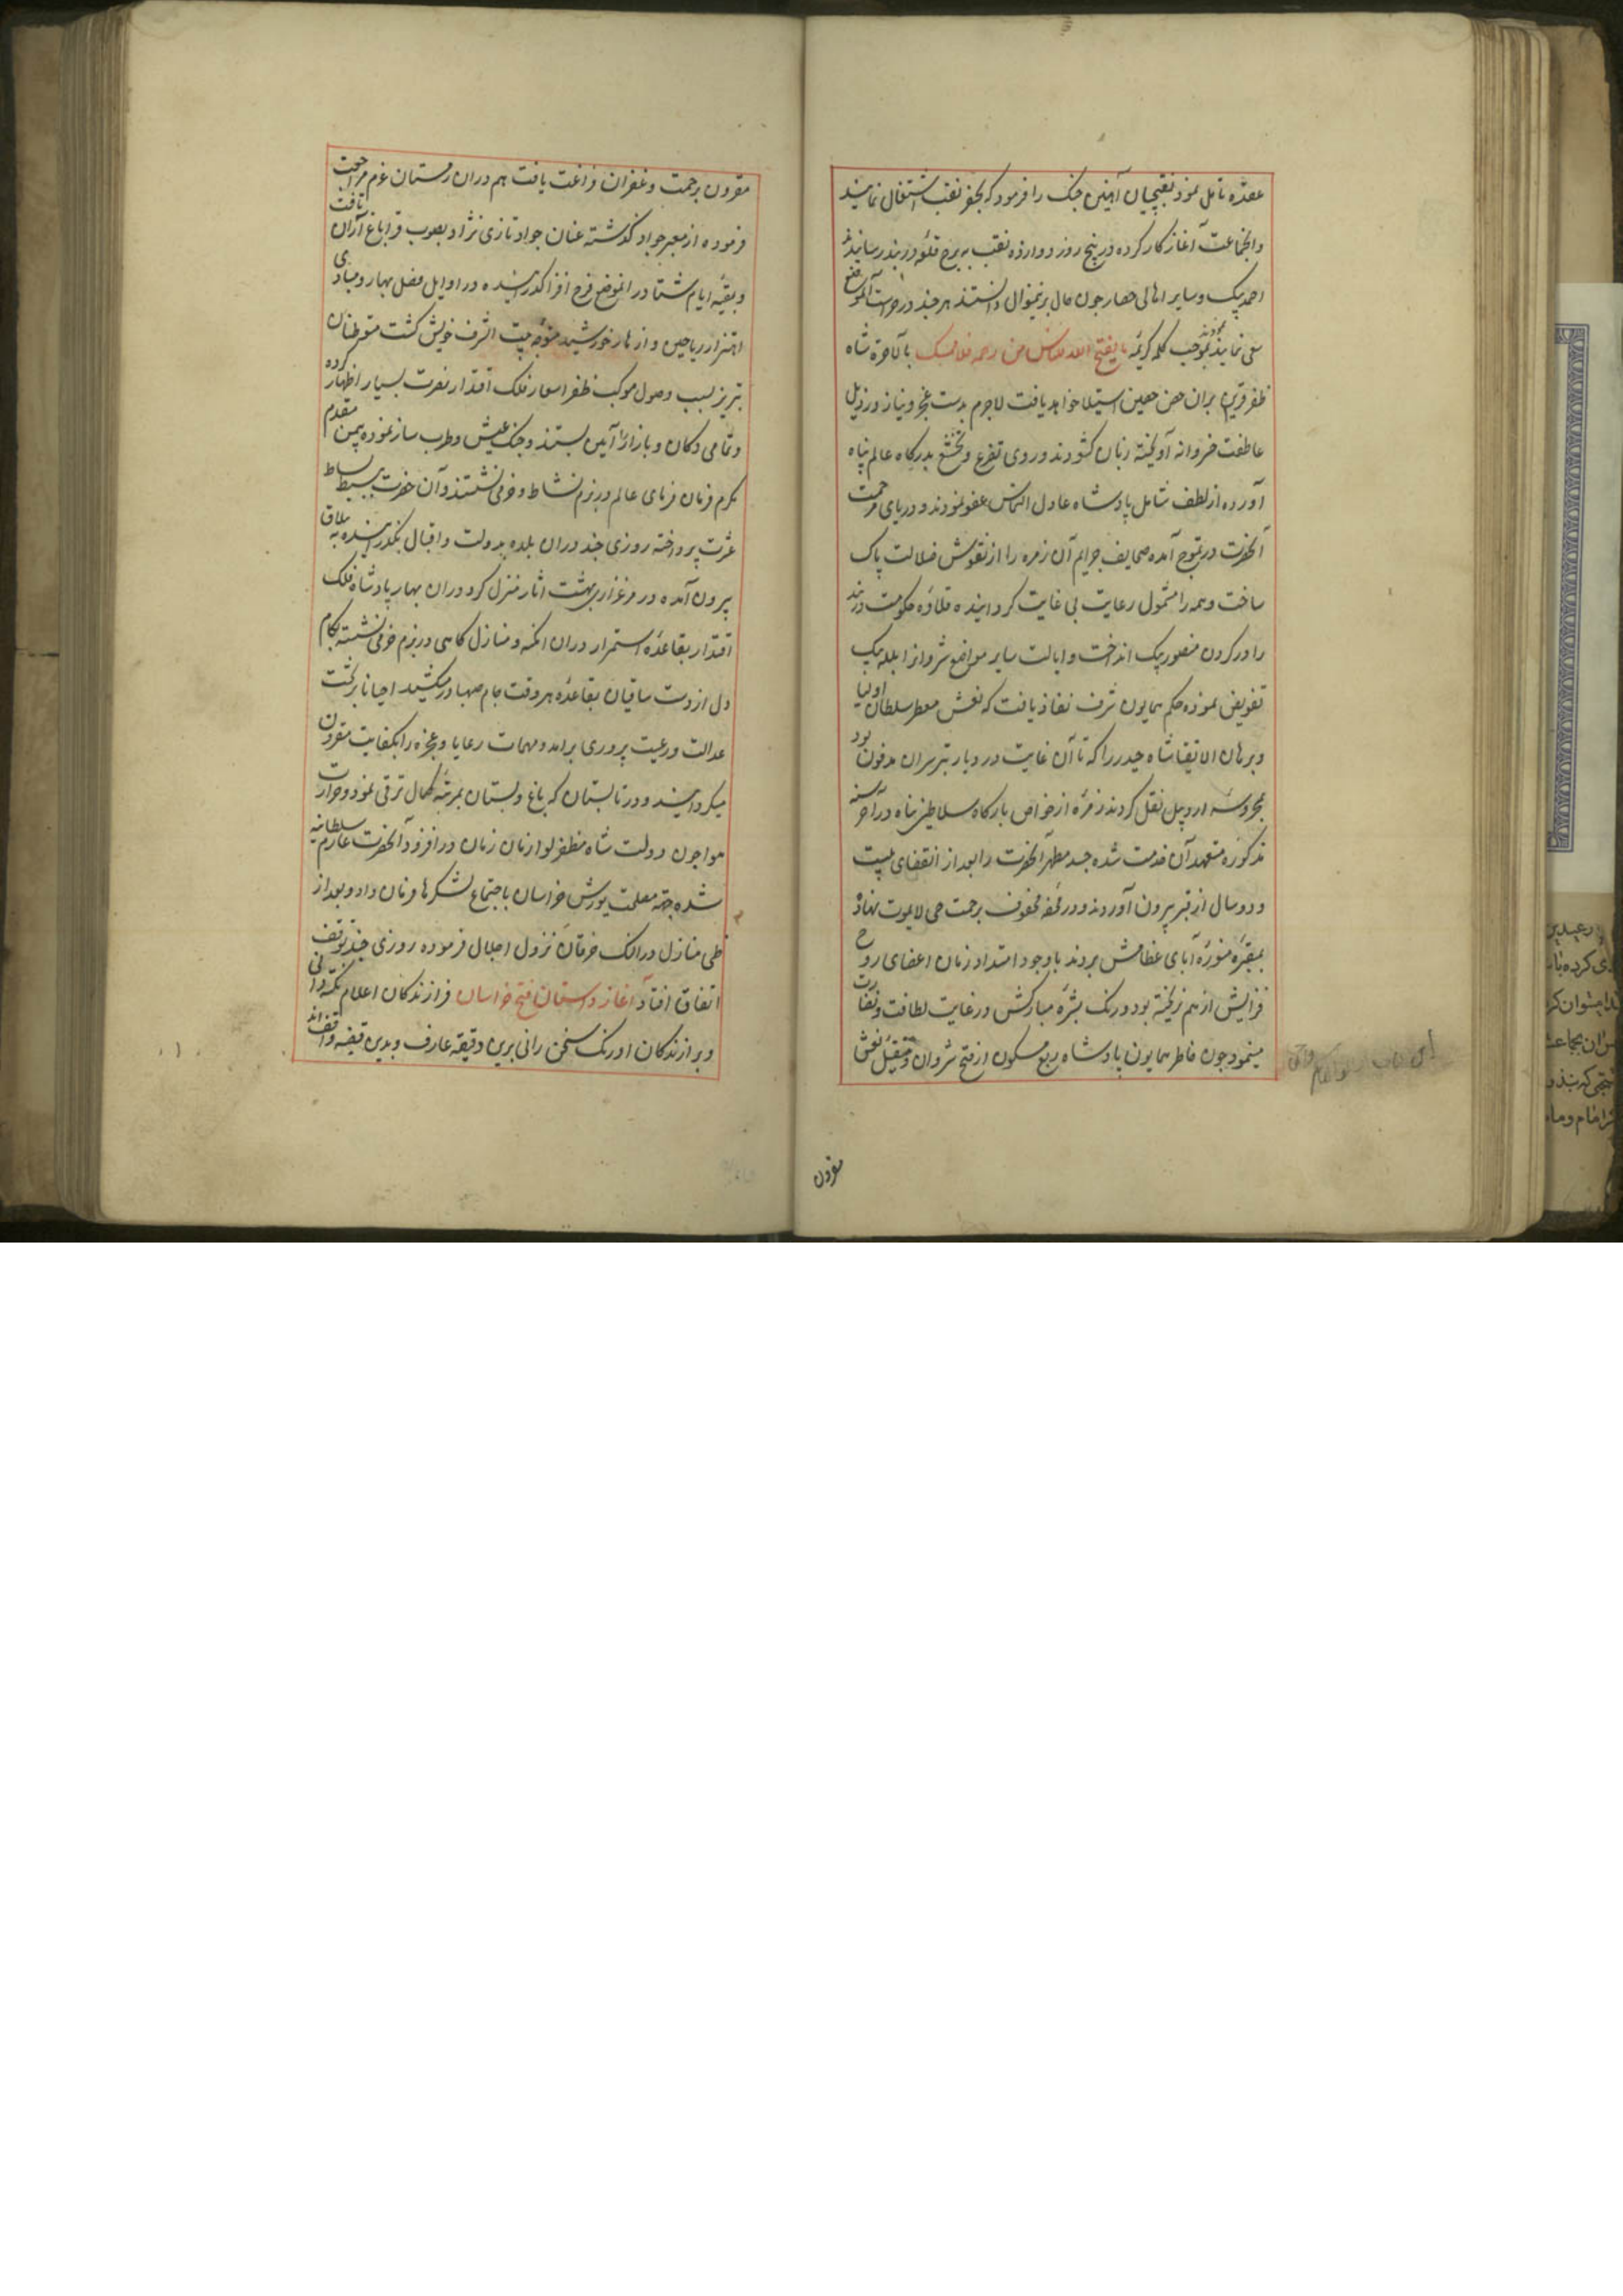 عقده تامل نمود نقبچیان آهنین جنک را فرمود که بحفر نقب اشتغال نمایند
و انجماعت آغاز کار کرده در پنج روز دوازده نقب به برج قلعه دربند رسانیدند
احمد بیک و سایر اهالی حصار چون حال برینموال دانستند هر چند در حراست آنموضع
سعی نمایند بموجب کلمه کریمه ما یفتح الله للناس من رحمة فلا ممسک بالاخره شاه
ظفر قرین بران حصن حصین استیلا خواهد یافت لاجرم بدست عجز و نیاز در ذیل
عاطفت خسروانه آویخته زبان کشودند و روی تضرع و تخشع بدرکاه عالم پناه
آورده از لطف شامل پادشاه عادل التماس عفو نمودند و دریای مرحمت
آنحضرت در تموج آمده صحایف جرایم آن زمره را از نقوش ضلالت پاک
ساخت و همه را مشمول رعایت بی غایت کردانیده قلاده حکومت دربند
را در کردن منصور بیک انداخت و ایالت سایر مواضع شروانرا بلله بیک
تفویض نموده حکم همایون شرف نفاذ یافت که نعش معطر سلطان اولیا
و برهان الاتقیا شاه حیدر را که تا آن غایت در دیار تبرسران مدفون بود
بمحروسه اردبیل نقل کردند زمره از خواص بارکاه سلاطین پناه در آخر سنه
مذکوره متعهد آن خدمت شده جسد مطهر آنحضرت را بعد از انقضای بیست
و دو سال از قبر بیرون آوردند و در محفه محفوف برحمت حی لا یموت نهاده
بمقبره منوره آبای عظامش بردند باوجود امتداد زمان اعضای روح
فزایش از هم نریخته بود و رنک بشره مبارکش در غایت لطافت و نضارت
مینمود چون خاطر همایون پادشاه ربع مسکون از فتح شروان و نقل نعش
مقرون
مقرون برحمت و غفران فراغت یافت هم دران زمستان عزم مراجعت
فرموده از معبر جواد کذشته عنان جواد تازی نژاد بصوب قراباغ آران تافت
و بقیه ایام شتا در انموضع فرح افزا کذرانیده در اوایل فصل بهار و مبادی
اهتزاز ریاحین و ازهار خورشید متوجه بیت الشرف خویش کشت متوطنان
تبریز بسبب وصول موکب ظفر اسعار فلک اقتدار نصرت بسیار اظهار کرده
و تمامی دکان و بازار را آیین بستند و جنک عیش و طرب ساز نموده بیمن مقدم
مکرم فرمان فرمای عالم در بزم نشاط و خرمی نشستند و آن حضرت ببسیط بساط
عشرت پرداخته روزی چند دران بلده بدولت و اقبال بکذرانیده به ییلاق
بیرون آمده در مرغزاری بهشت اثار منزل کرد و دران بهار پادشاه فلک
اقتدار بقاعده استمرار دران امکنه و منازل کاهی در بزم خرمی نشسته بکام
دل از دست ساقیان بقاعده هر وقت جام صهبا در میکشید احیانا بر تخت
عدالت و رعیت پروری برامد و مهمات رعایا و عجزه را بکفایت مقرون
میکردانید و در تابستان که باغ و بستان بمرتبه کمال ترقی نمود و حرارت
هوا چون دولت شاه مظفر لوا زمان زمان در افزود آنحضرت عازم سلطانیه
شده جهة مصلحت یورش خراسان باجتماع لشکرها فرمان داد و بعد از
طی منازل در النک خرقان نزول اجلال فرموده روزی چند توقف
اتفاق افتاد آغاز داستان فتح خراسان فرازندکان اعلام نکته دانی
و برازندکان اورنک سخن رانی برین دقیقه عارف و بدین قضیه واقف اند